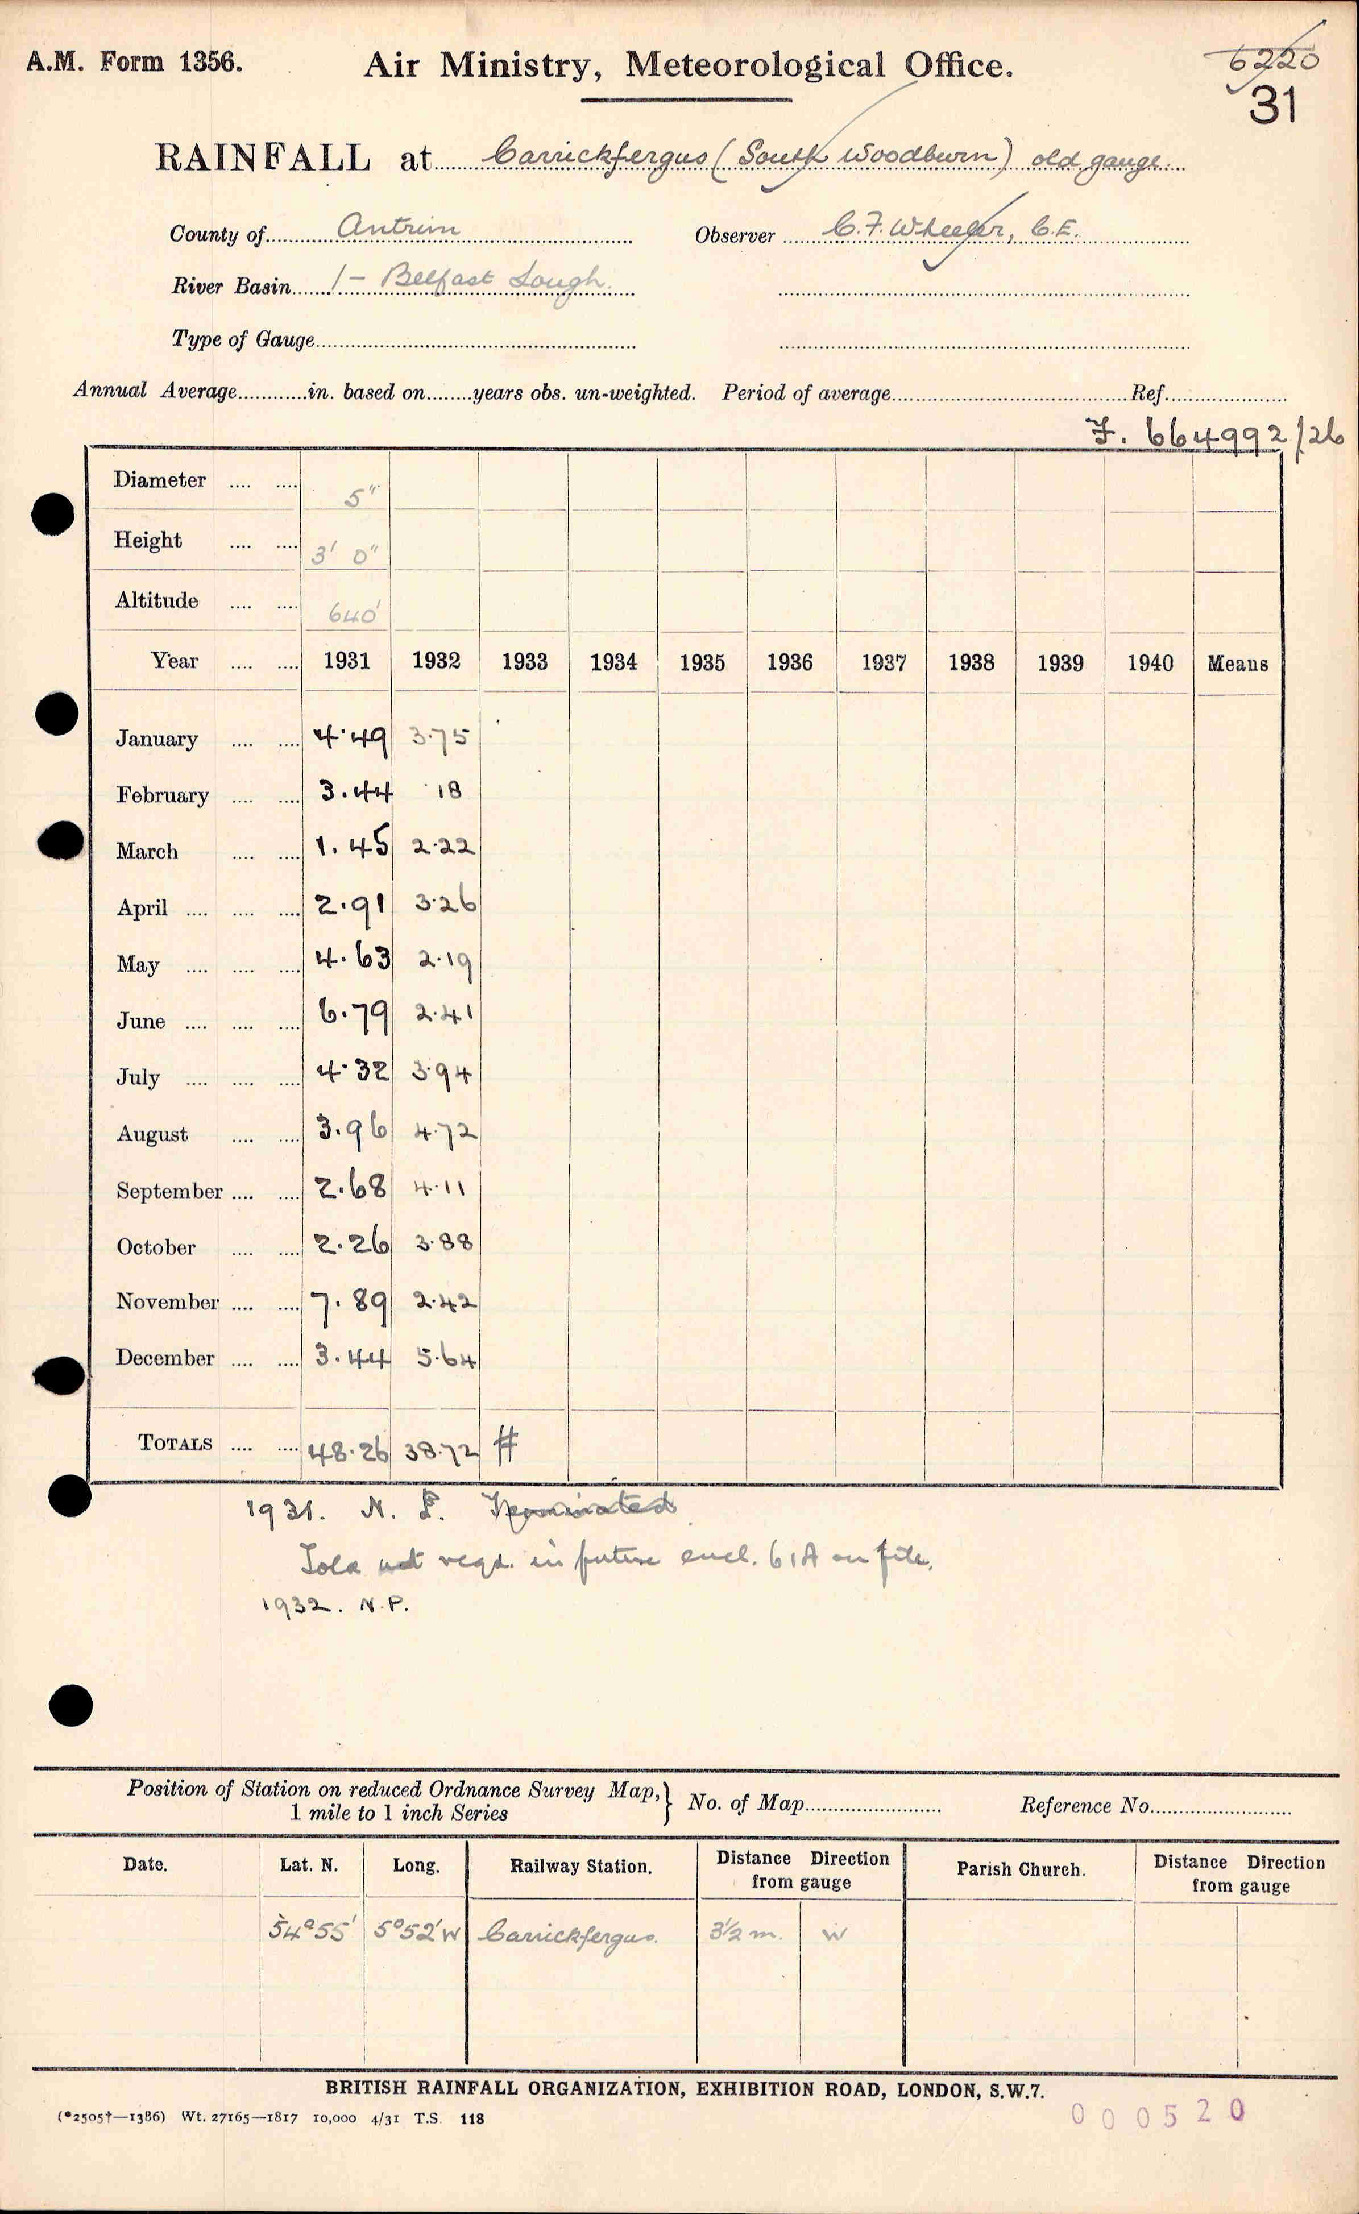 A.M. Form 1356.
Air Ministry, Meteorological Office.
6220
31
RAINFALL at Carrickfergus (South Woodburn) old gauge.
County of Antrim Observer C.F. Wheeler, C.E.
River Basin 1 - Belfast Lough.
Type of Gauge
Annual Average in. based on years obs. un-weighted. Period of average Ref.
F. 664992/26
Diameter 5"
Height 3' 0"
Altitude 640'
Year 1931 1932 1933 1934 1935 1936 1937 1938 1939 1940 Means
January 4.49 3.75
February 3.44 .18
March 1.45 2.22
April 2.91 3.26
May 4.63 2.19
June 6.79 2.41
July 4.32 3.94
August 3.96 4.72
September 2.68 4.11
October 2.26 3.88
November 7.89 2.42
December 3.44 5.64
TOTALS 48.26 38.72 #
1931. N. P. Terminated
Told not reqd. in future encl. 61A on file.
1932. N.P.
Position of Station on reduced Ordnance Survey Map, 1 mile to 1 inch Series } No. of Map Reference No.
Date. Lat. N. Long. Railway Station. Distance Direction from gauge Parish Church. Distance Direction from gauge
54°55' 5°52'W Carrickfergus. 3½ m. W
BRITISH RAINFALL ORGANIZATION, EXHIBITION ROAD, LONDON, S.W.7.
(*2505†—1386) Wt. 27165—1817 10,000 4/31 T.S. 118
000520